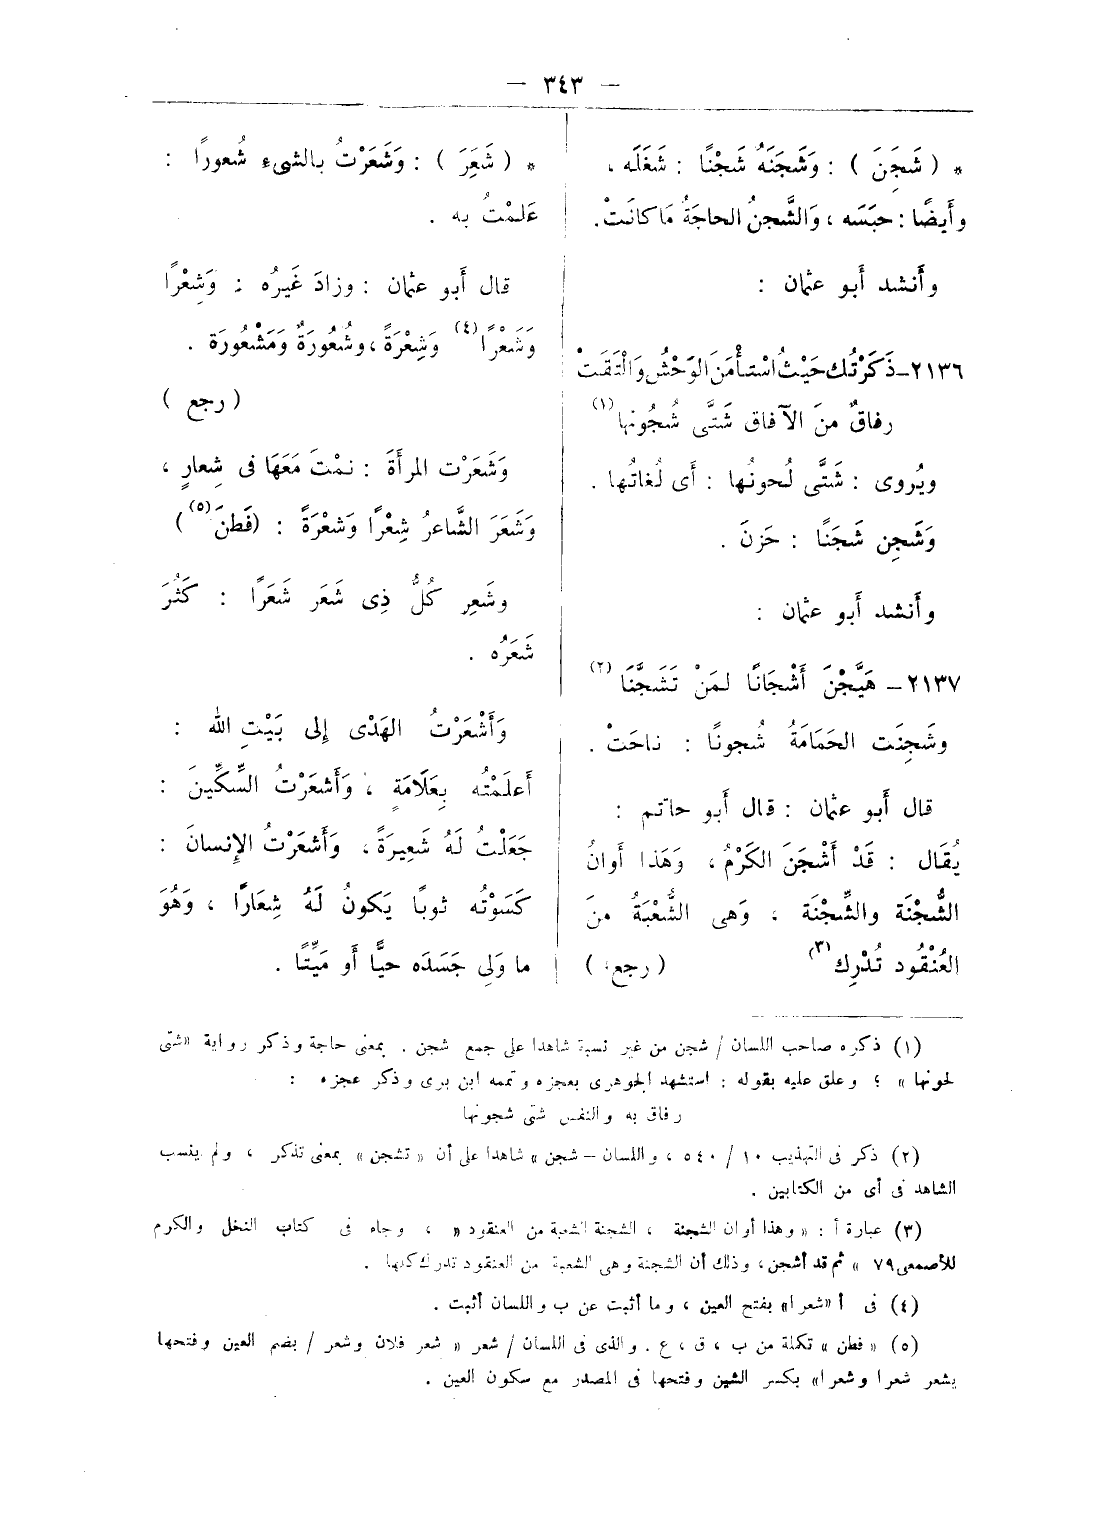 — ٣٤٣ —
* ( شَجَنَ ) : وَشَجَنَهُ شَجْنًا : شَغَلَه ،
وأَيضًا : حبَسَه ، وَالشَّجنُ الحاجَةُ مَا كانَتْ.
وأَنشد أَبو عثمان :
٢١٣٦ــ ذَكَرْتُك حَيْثُ اسْتأْمَنَ الوَحْشُ وَالْتَقَتْ
رفاقٌ منَ الآفاق شَتَّى شُجُونها (١)
ويُروى : شَتَّى لُحونُها : أَى لُغاتُها .
وَشَجِن شَجَنًا : حَزنَ .
وأَنشد أَبو عثمان :
٢١٣٧ــ هَيَّجْنَ أَشْجَانًا لمَنْ تَشَجَّنَا (٢)
وشَجِنَت الحَمَامَةُ شُجونًا : ناحَتْ .
قال أَبو عثمان : قال أَبو حاتم :
يُقَال : قَدْ أَشْجَنَ الكَرْمُ ، وَهَذا أَوانُ
الشُّجْنَة والشِّجْنَة ، وَهى الشُّعْبَةُ منَ
العُنْقُود تُدْرِك (٣) ( رجع )
* ( شَعَرَ ) : وَشَعَرْتُ بالشىء شُعورًا :
عَلمْتُ به .
قال أَبو عثمان : وزادَ غَيرُه : وَشِعْرًا
وَشَعْرًا (٤) وَشِعْرَةً ، وشُعُورَةٌ وَمَشْعُورَة .
( رجع )
وَشَعَرْت المرأَةَ : نمْتَ مَعَهَا فى شِعارٍ ،
وَشَعَرَ الشَّاعرُ شِعْرًا وَشعْرَةً : (فَطنَ (٥))
وشَعِر كُلُّ ذِى شَعَر شَعَرًا : كَثُرَ
شَعَرُه .
وَأَشْعَرْتُ الهَدْى إِلى بَيْتِ الله :
أَعلَمْتُه بِعَلَامَةٍ ، وَأَشعَرْتُ السِّكِّينَ :
جَعَلْتُ لَهُ شَعِيرَةً ، وَأَشعَرْتُ الإنسانَ :
كَسَوْتُه ثوبًا يَكونُ لَهُ شِعَارًا ، وَهُوَ
ما وَلِى جَسَدَه حيًّا أَو مَيِّتًا .
(١) ذكره صاحب اللسان / شجن من غير نسبة شاهدا على جمع شجن . بمعنى حاجة وذكر رواية «شتى
لحونها» ؛ وعلق عليه بقوله : استشهد الجوهرى بعجزه وتممه ابن برى وذكر عجزه :
رفاق به والنفس شتى شجونها
(٢) ذكر فى التهذيب ١٠ / ٥٤٠ ، واللسان – شجن» شاهدا على أن «تشجن» بمعنى تذكر ، ولم ينسب
الشاهد فى أى من الكتابين .
(٣) عبارة أ : «وهذا أوان الشجنة ، الشجنة الشعبة من العنقود» ، وجاء فى كتاب النخل والكرم
للأصمعى ٧٩ «ثم قد أشجن ، وذلك أن الشجنة وهى الشعبة من العنقود تدرك كلها .
(٤) فى أ «شعرا» بفتح العين ، وما أثبت عن ب واللسان أثبت .
(٥) «فطن» تكملة من ب ، ق ، ع . والذى فى اللسان / شعر «شعر فلان وشعر / بضم العين وفتحها
يشعر شعرا وشعرا» بكسر الشين وفتحها فى المصدر مع سكون العين .